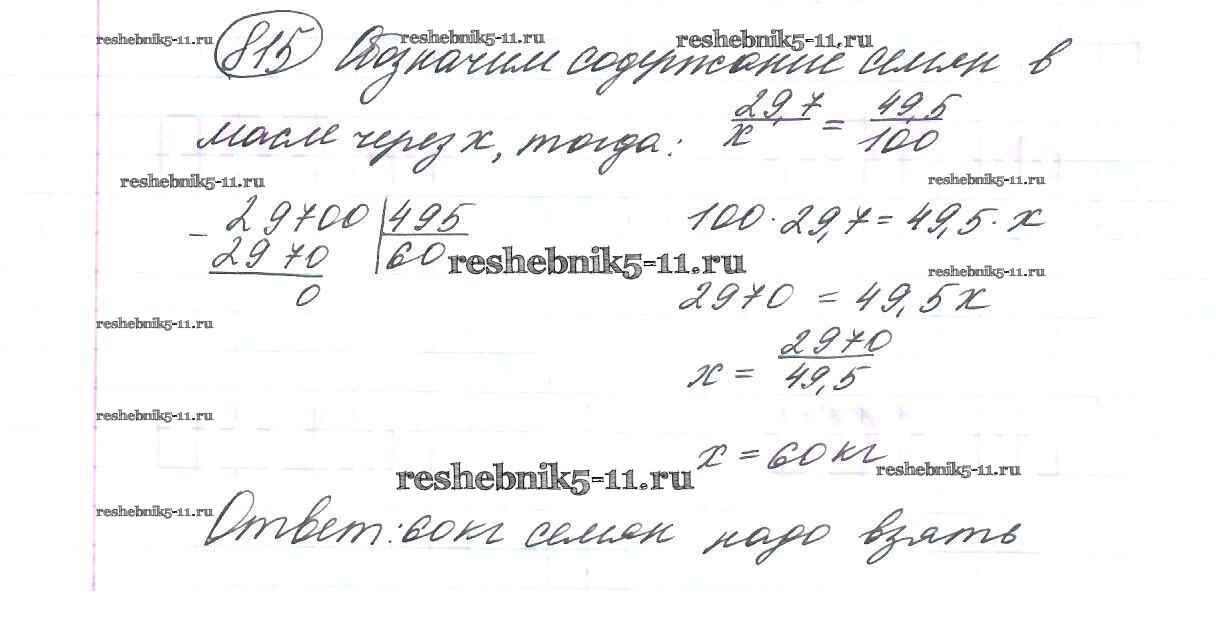 reshebnik5-11.ru reshebnik5-11.ru reshebnik5-11.ru
815 Обозначим содержание семян в
масле через x, тогда: 29,7/x = 49,5/100
reshebnik5-11.ru reshebnik5-11.ru
- 29700 | 495 100 · 29,7 = 49,5 · x
2970 | 60 reshebnik5-11.ru reshebnik5-11.ru
0 2970 = 49,5x
reshebnik5-11.ru
x = 2970/49,5
reshebnik5-11.ru
x = 60 кг
reshebnik5-11.ru reshebnik5-11.ru
reshebnik5-11.ru
Ответ: 60 кг семян надо взять